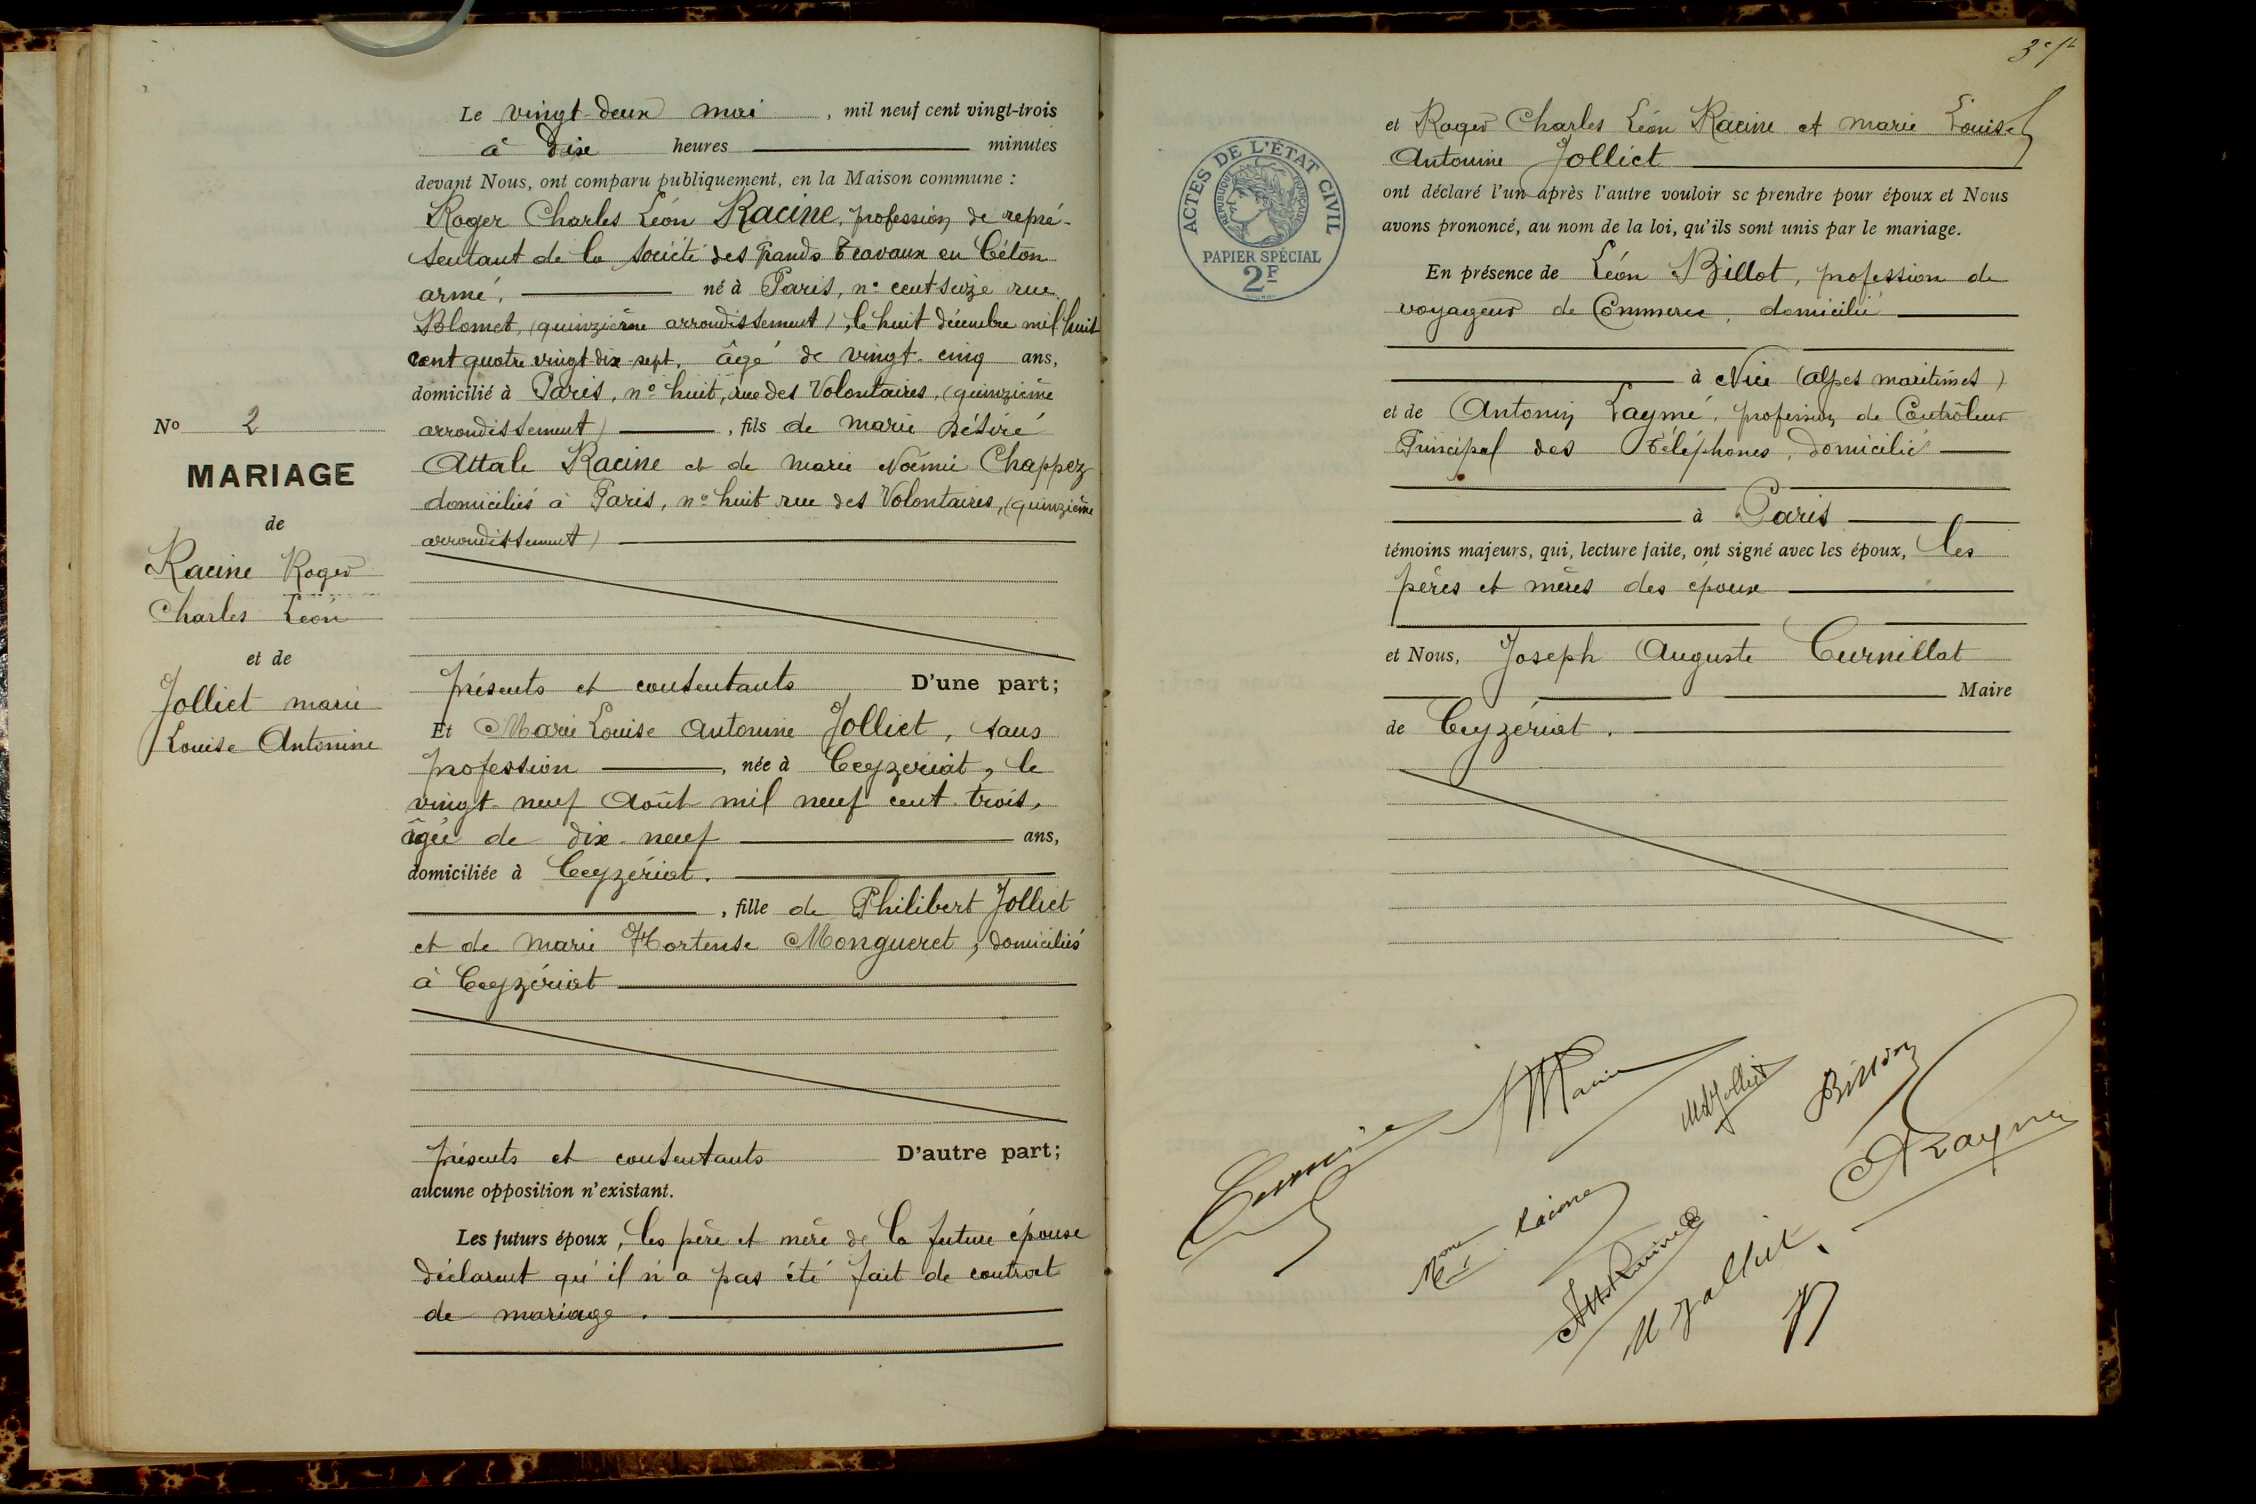 Le vingt-deux mai, mil neuf cent vingt-trois
à dix heures minutes
devant Nous, ont comparu publiquement, en la Maison commune :
Roger Charles Léon Racine, profession de repré-
sentant de la Société des Grands Travaux en Béton
armé, né à Paris, n° cent seize rue
Blomet, (quinzième arrondissement), le huit décembre mil huit
cent quatre vingt dix-sept, âgé de vingt-cinq ans,
domicilié à Paris, n° huit, rue des Volontaires, (quinzième
arrondissement), fils de Marie Désiré
Attale Racine et de Marie Noémie Chappez
domiciliés à Paris, n° huit rue des Volontaires, (quinzième
arrondissement)
présents et consentants D'une part;
Et Marie Louise Antonine Jolliet, sans
profession, née à Ceyzériat, le
vingt-neuf Août mil neuf cent trois,
âgée de dix-neuf ans,
domiciliée à Ceyzériat.
, fille de Philibert Jolliet
et de Marie Hortense Mongueret, domiciliés
à Ceyzériat
présents et consentants D'autre part;
aucune opposition n'existant.
Les futurs époux, les père et mère de la future épouse
déclarent qu'il n'a pas été fait de contrat
de mariage.
No 2
MARIAGE
de
Racine Roger
Charles Léon
et de
Jolliet marie
Louise Antonine
ACTES DE L'ÉTAT CIVIL
RÉPUBLIQUE FRANÇAISE
PAPIER SPÉCIAL
2F
et Roger Charles Léon Racine et Marie Louise
Antonine Jolliet
ont déclaré l'un après l'autre vouloir se prendre pour époux et Nous
avons prononcé, au nom de la loi, qu'ils sont unis par le mariage.
En présence de Léon Billot, profession de
voyageur de Commerce, domicilié
à Nice (Alpes maritimes)
et de Antonin Laymé, profession de Contrôleur
Principal des Téléphones, domicilié
à Paris
témoins majeurs, qui, lecture faite, ont signé avec les époux, les
pères et mères des époux
et Nous, Joseph Auguste Curnillat
Maire
de Ceyzériat.
Racine
Jolliet
Mme Racine
M Jolliet